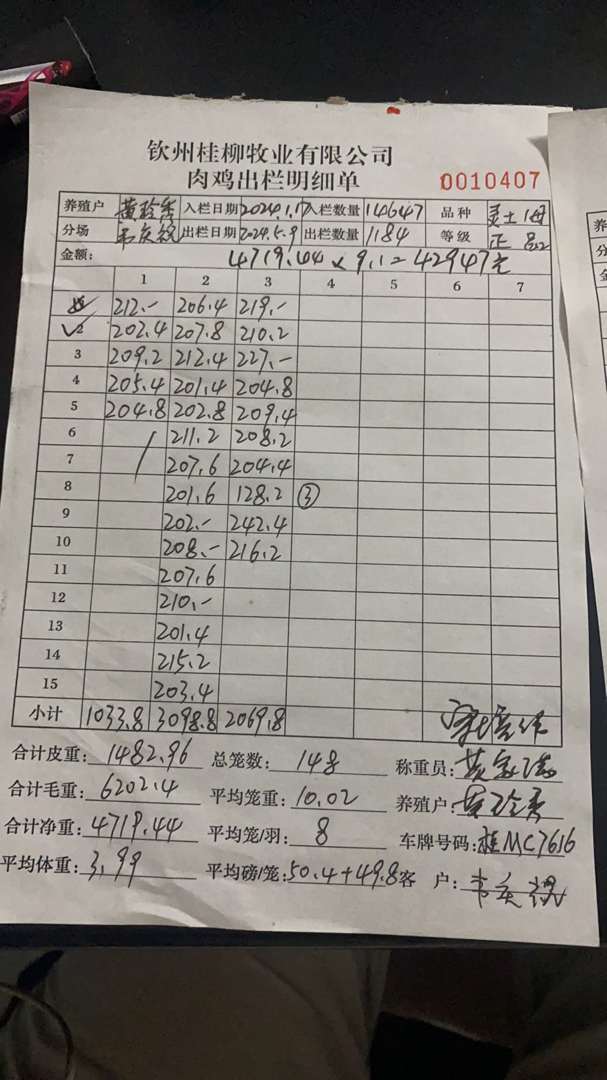 钦州桂柳牧业有限公司
肉鸡出栏明细单 0010407
养殖户 黄玲秀 入栏日期 2024.1.17 入栏数量 14647 品种 灵土1母
分场 韦庆 出栏日期 2024.5.9 出栏数量 1184 等级 正品
金额: 4719.44×9.1=42947元
1 2 3 4 5 6 7
212.- 206.4 219.-
2 202.4 207.8 210.2
3 209.2 212.4 227.-
4 205.4 201.4 204.8
5 204.8 202.8 209.4
6 211.2 208.2
7 207.6 204.4
8 201.6 128.2 ③
9 202.- 242.4
10 208.- 216.2
11 207.6
12 210.-
13 201.4
14 215.2
15 203.4
小计 1033.8 3098.8 2069.8
合计皮重: 1482.96 总笼数: 148 称重员: 黄
合计毛重: 6202.4 平均笼重: 10.02 养殖户: 黄玲秀
合计净重: 4719.44 平均笼/羽: 8 车牌号码: 桂MC7616
平均体重: 3.99 平均磅/笼: 50.4+49.8 客户: 韦庆
养
分
金